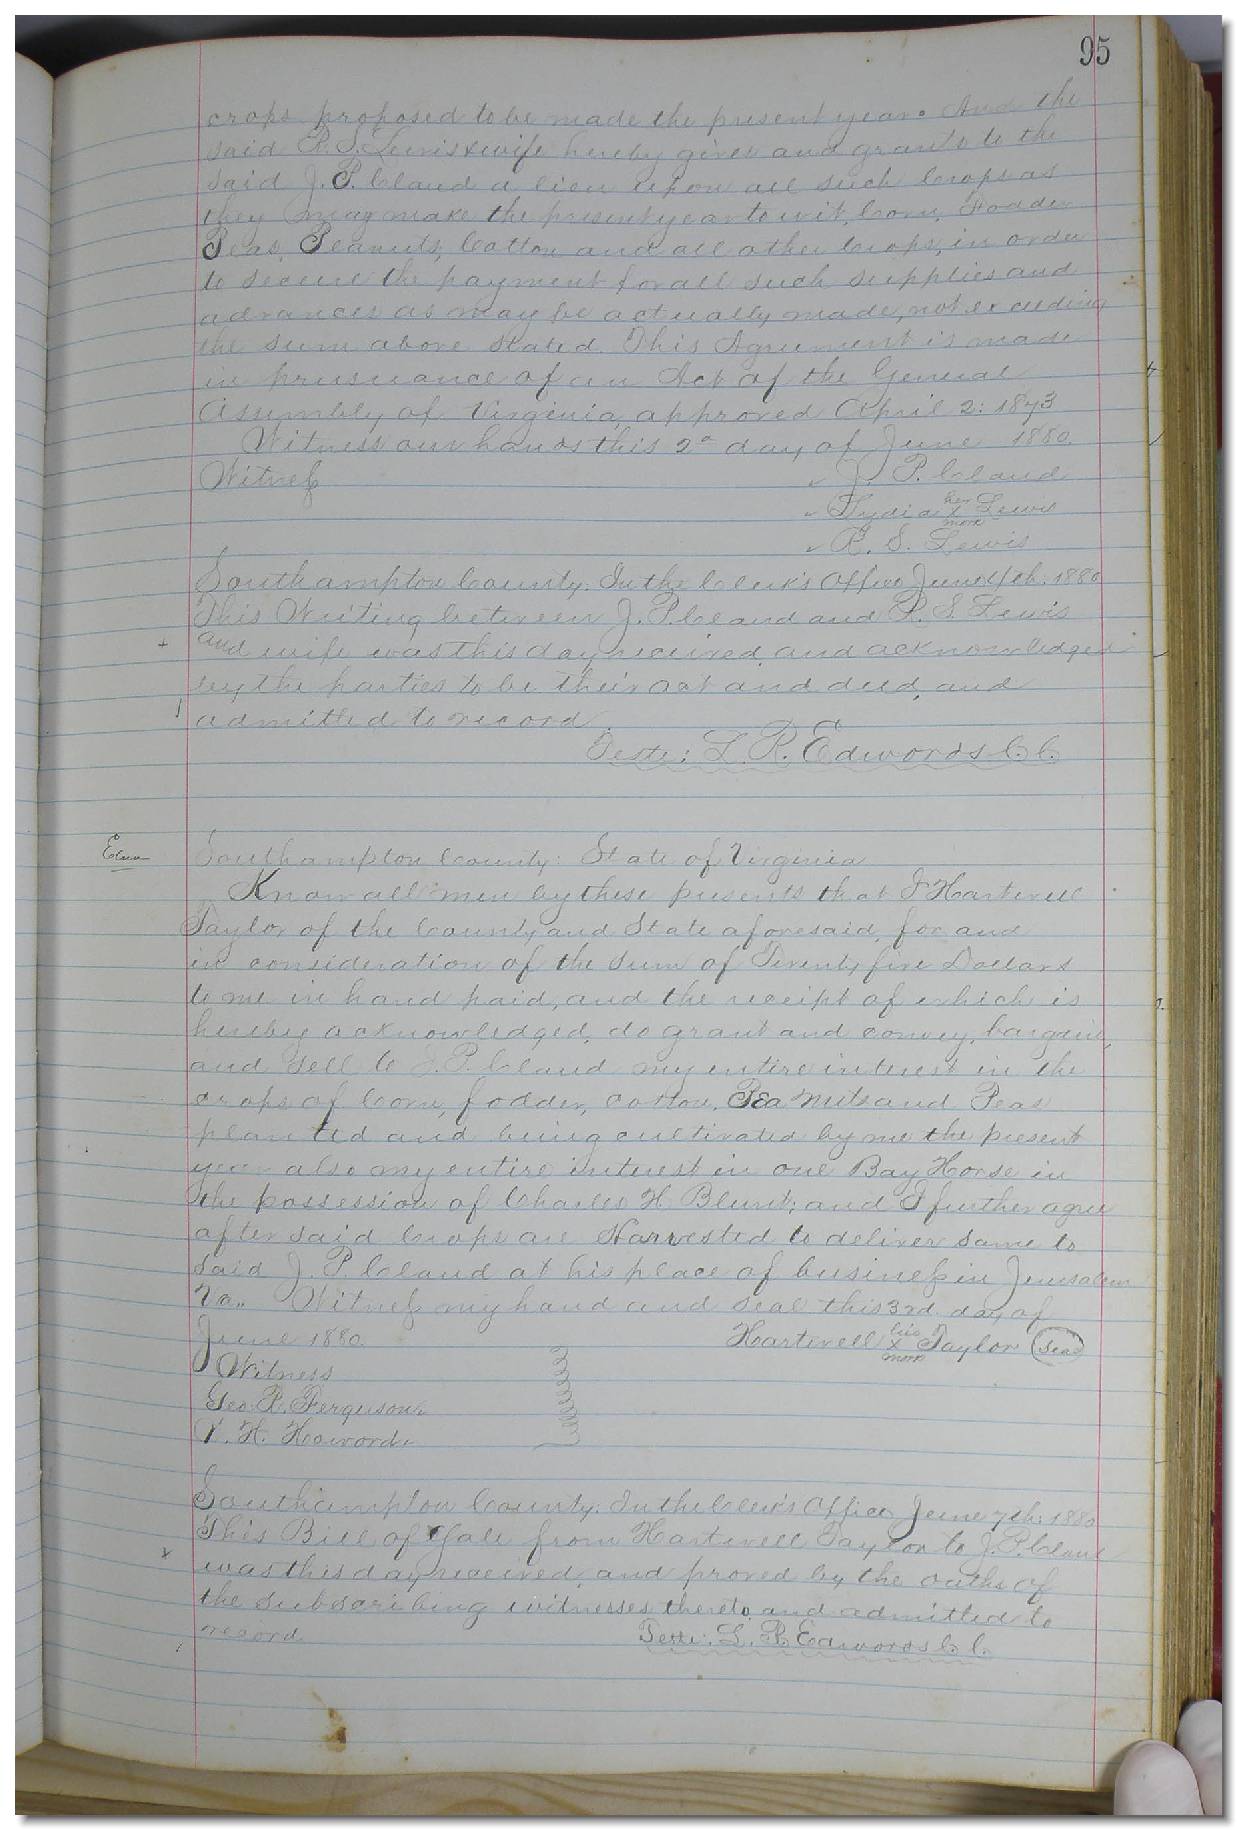 95
crops proposed to be made the present year. And the
said R. S. Lewis & wife hereby gives and grants to the
said J. P. Cland a lien upon all such Crops as
they may make the present year to wit, Corn, Fodder
Peas, Peanuts, Cotton and all other Crops, in order
to secure the payment for all such supplies and
advances as may be actually made, not exceeding
the sum above stated. This Agreement is made
in prusuance of an Act of the General
Assembly of Virginia, approved April 2: 1873
Witness our hands this 2d day of June 1880.
Witness J. P. Cland
Lydia her X mark Lewis
R. S. Lewis
Southampton County: In the Clerk's Office June 4th. 1880
This Writing between J. P. Cland and R. S. Lewis
and wife was this day received, and acknowledged
by the parties to be their act and deed, and
admitted to record.
Teste: L. R. Edwards C. C.
Exn
Southampton County: State of Virginia
Know all men by these presents that I Hartwell
Taylor of the County and State aforesaid, for and
in consideration of the sum of Twenty five Dollars
to me in hand paid, and the receipt of which is
hereby acknowledged, do grant and convey, bargain,
and sell to J. P. Cland my entire interest in the
crops of Corn, fodder, cotton, Pea nuts and Peas
planted and being cultivated by me the present
year also my entire interest in one Bay Horse in
the possession of Charles H. Blunt; and I further agree
after said Crops are Harvested to deliver same to
said J. P. Cland at his place of business in Jerusalem
Va,, Witness my hand and seal this 3rd. day of
June 1880. Hartwell his X mark Taylor (Seal)
Witness
Geo. P. Ferguson.
V. H. Howard.
Southampton County: In the Clerk's Office June 7th: 1880
This Bill of Sale from Hartwell Taylor to J. P. Cland
was this day received, and proved by the oaths of
the subscribing witnesses thereto and admitted to
record. Teste: L. R. Edwards C. C.